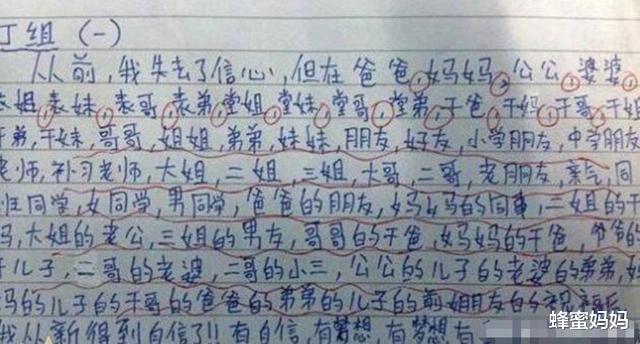 丁组（一）
从前,我失去了信心,但在爸爸,妈妈,公公,婆婆,
表姐,表妹,表哥,表弟,堂姐,堂妹,堂哥,堂弟,干爸,干妈,干哥,干姐
干弟,干妹,哥哥,姐姐,弟弟,妹妹,朋友,好友,小学朋友,中学朋友
老师,补习老师,大姐,二姐,三姐,大哥,二哥,老朋友,亲气,同
班同学,女同学,男同学,爸爸的朋友,妈妈的同事,二姐的干
妈,大姐的老公,三姐的男友,哥哥的干爸,妈妈的干爸,爷爷的
干儿子,二哥的老婆,二哥的小三,公公的儿子的老婆的弟弟,
妈的儿子的干哥的爸爸的弟弟的儿子的前姐朋友的祝福后
我从新得到自信了!!有自信,有梦想,有梦想有
蜂蜜妈妈